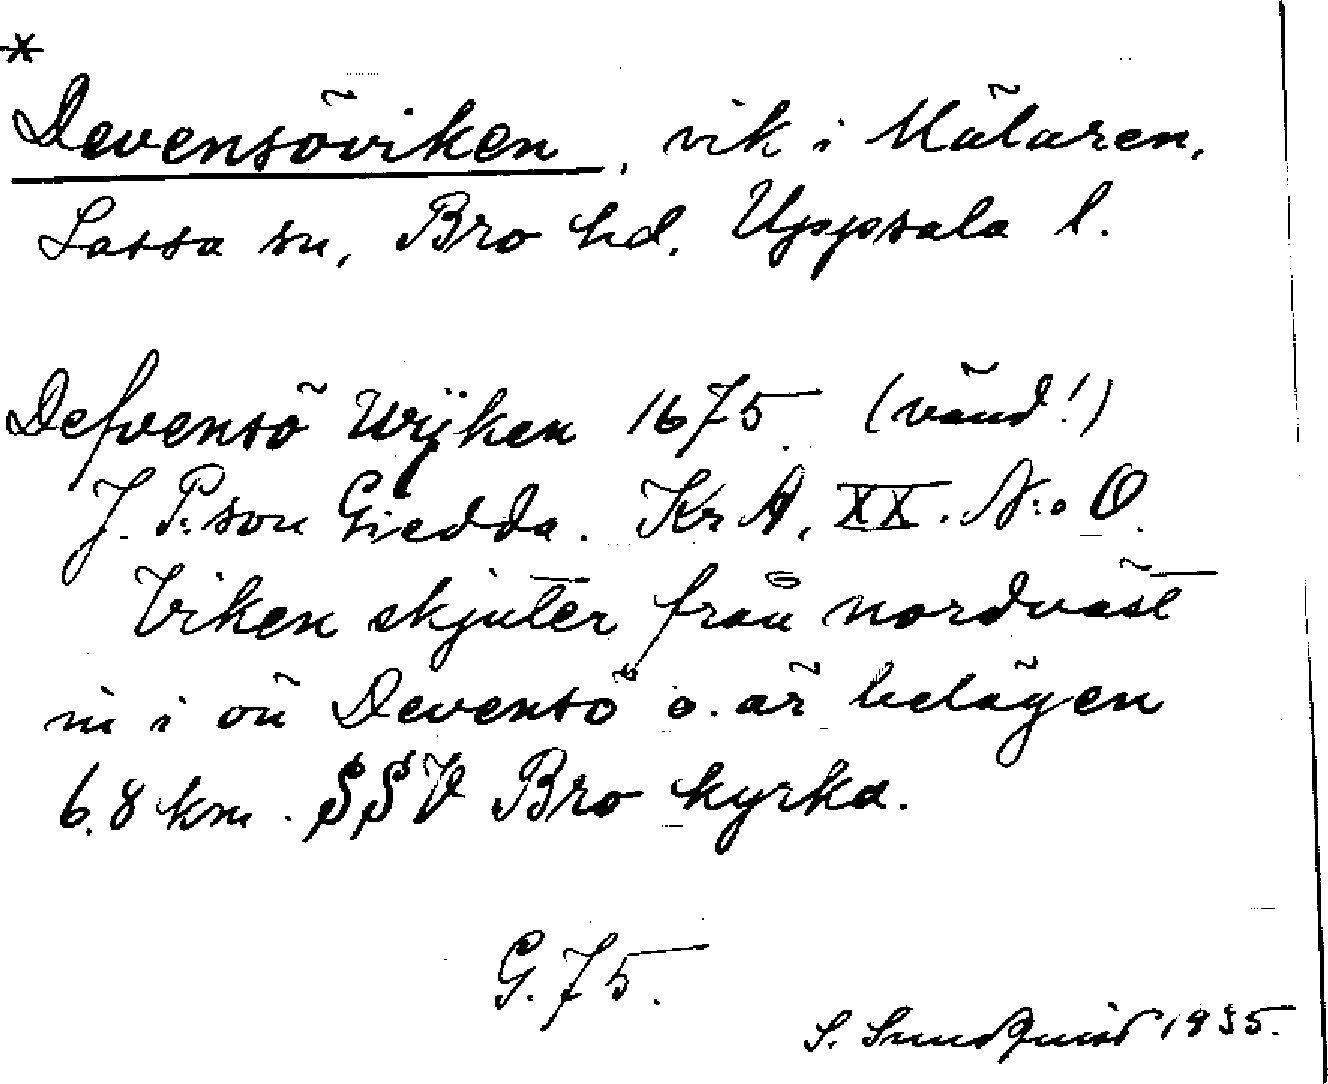 *
Devensöviken, vik i Mälaren,
Lassa sn, Bro hd. Uppsala l.
Defvensö Wijken 1675. (vänd!)
J. P:son Giedda. Kr A, XX. N:o O.
Viken skjuter från nordväst
in i ön Devensö o. är belägen
6.8 km. SSV Bro kyrka.
G. 75.
S. Sundquist 1935.